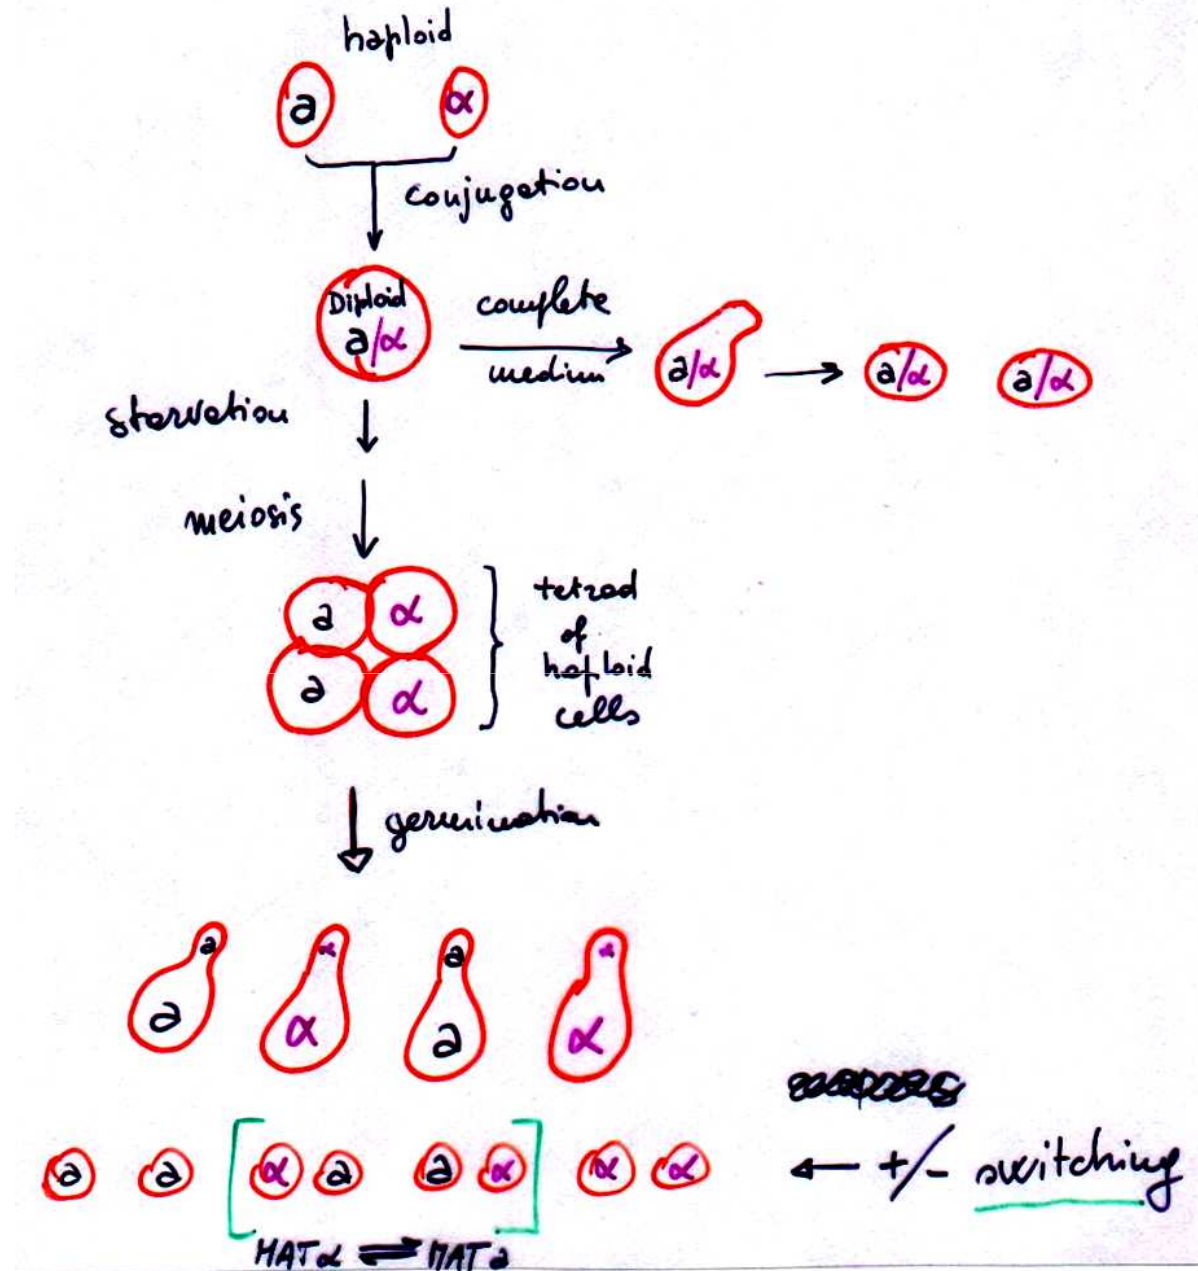 haploid
a α
conjugation
Diploid
a/α
complete
medium
a/α
a/α a/α
starvation
meiosis
a α
a α
tetrad
of
haploid
cells
germination
a α a α
a α a α
a a [ α a a α ] α α
← +/- switching
MATα ⇌ MATa